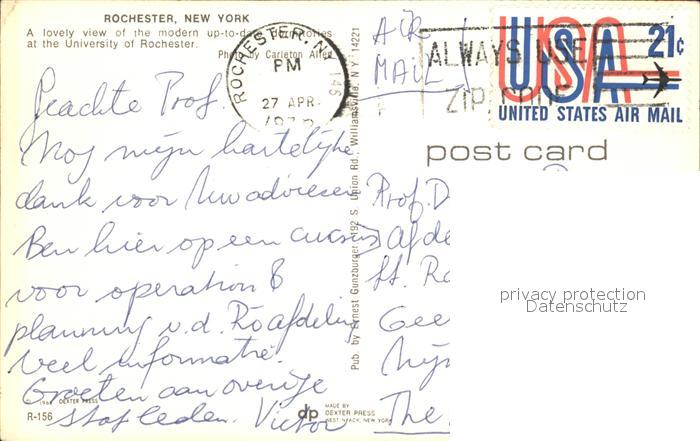 ROCHESTER, NEW YORK
A lovely view of the modern up-to-date dormitories
at the University of Rochester.
Photo by Carleton Allen
Geachte Prof.
Nog mijn hartelijke
dank voor Uw adviezen
Ben hier op een cursus
voor operation &
planning v.d. Röafdeling
veel informatie.
Groeten aan overige
stafleden. Victor
DEXTER PRESS
R-156
Pub. by Ernest Gunzburger, 192 S. Union Rd., Williamsville, N.Y. 14221
dp
MADE BY
DEXTER PRESS
WEST NYACK, NEW YORK
ROCHESTER, N.
PM
27 APR
AIR
MAIL
ALWAYS USE
ZIP CODE
USA 21c
UNITED STATES AIR MAIL
post card
Prof. D
Afde
St. Ra
Gee
Nij
The
privacy protection
Datenschutz